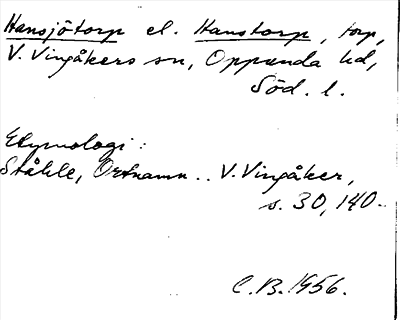 Hansjötorp el. Hanstorp, torp,
V. Vingåkers sn, Oppunda hd,
Söd. l.
Etymologi:
Ståhle, Ortnamn.. V. Vingåker,
s. 30, 140.
C.B. 1956.